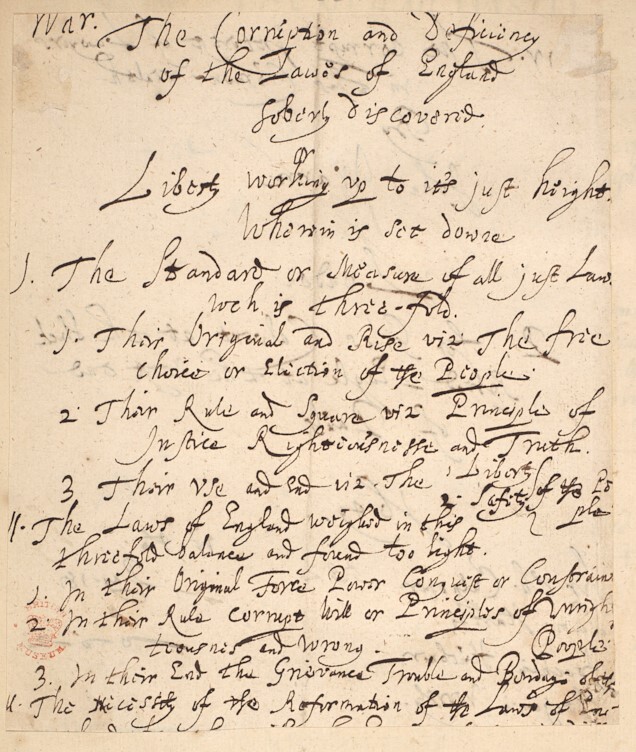 War.
The Corruption and Deficiency
of the Lawes of England
soberly discovered.
or
Liberty working up to it's just height.
Wherin is set downe
1. The Standard or Measure of all just Law
wch is three-fold.
1. Their Original and Rise viz The free
choice or Election of the People.
2. Their Rule and Square viz Principle of
Justice Righteousnesse and Truth.
3 Their Use and End viz. The 1 Liberty
2. Safety of the Peo
ple
II. The Laws of England weighed in this
threefold balance and found too light.
1. In their Original Force Power Conquest or Constraint
2 In their Rule corrupt Will or Principles of Unrigh
teousnes and Wrong.
People
3. In their End the Grievance Trouble and Bondage of the
The necessity of the Reformation of the Laws of
BRITISH MUSEUM